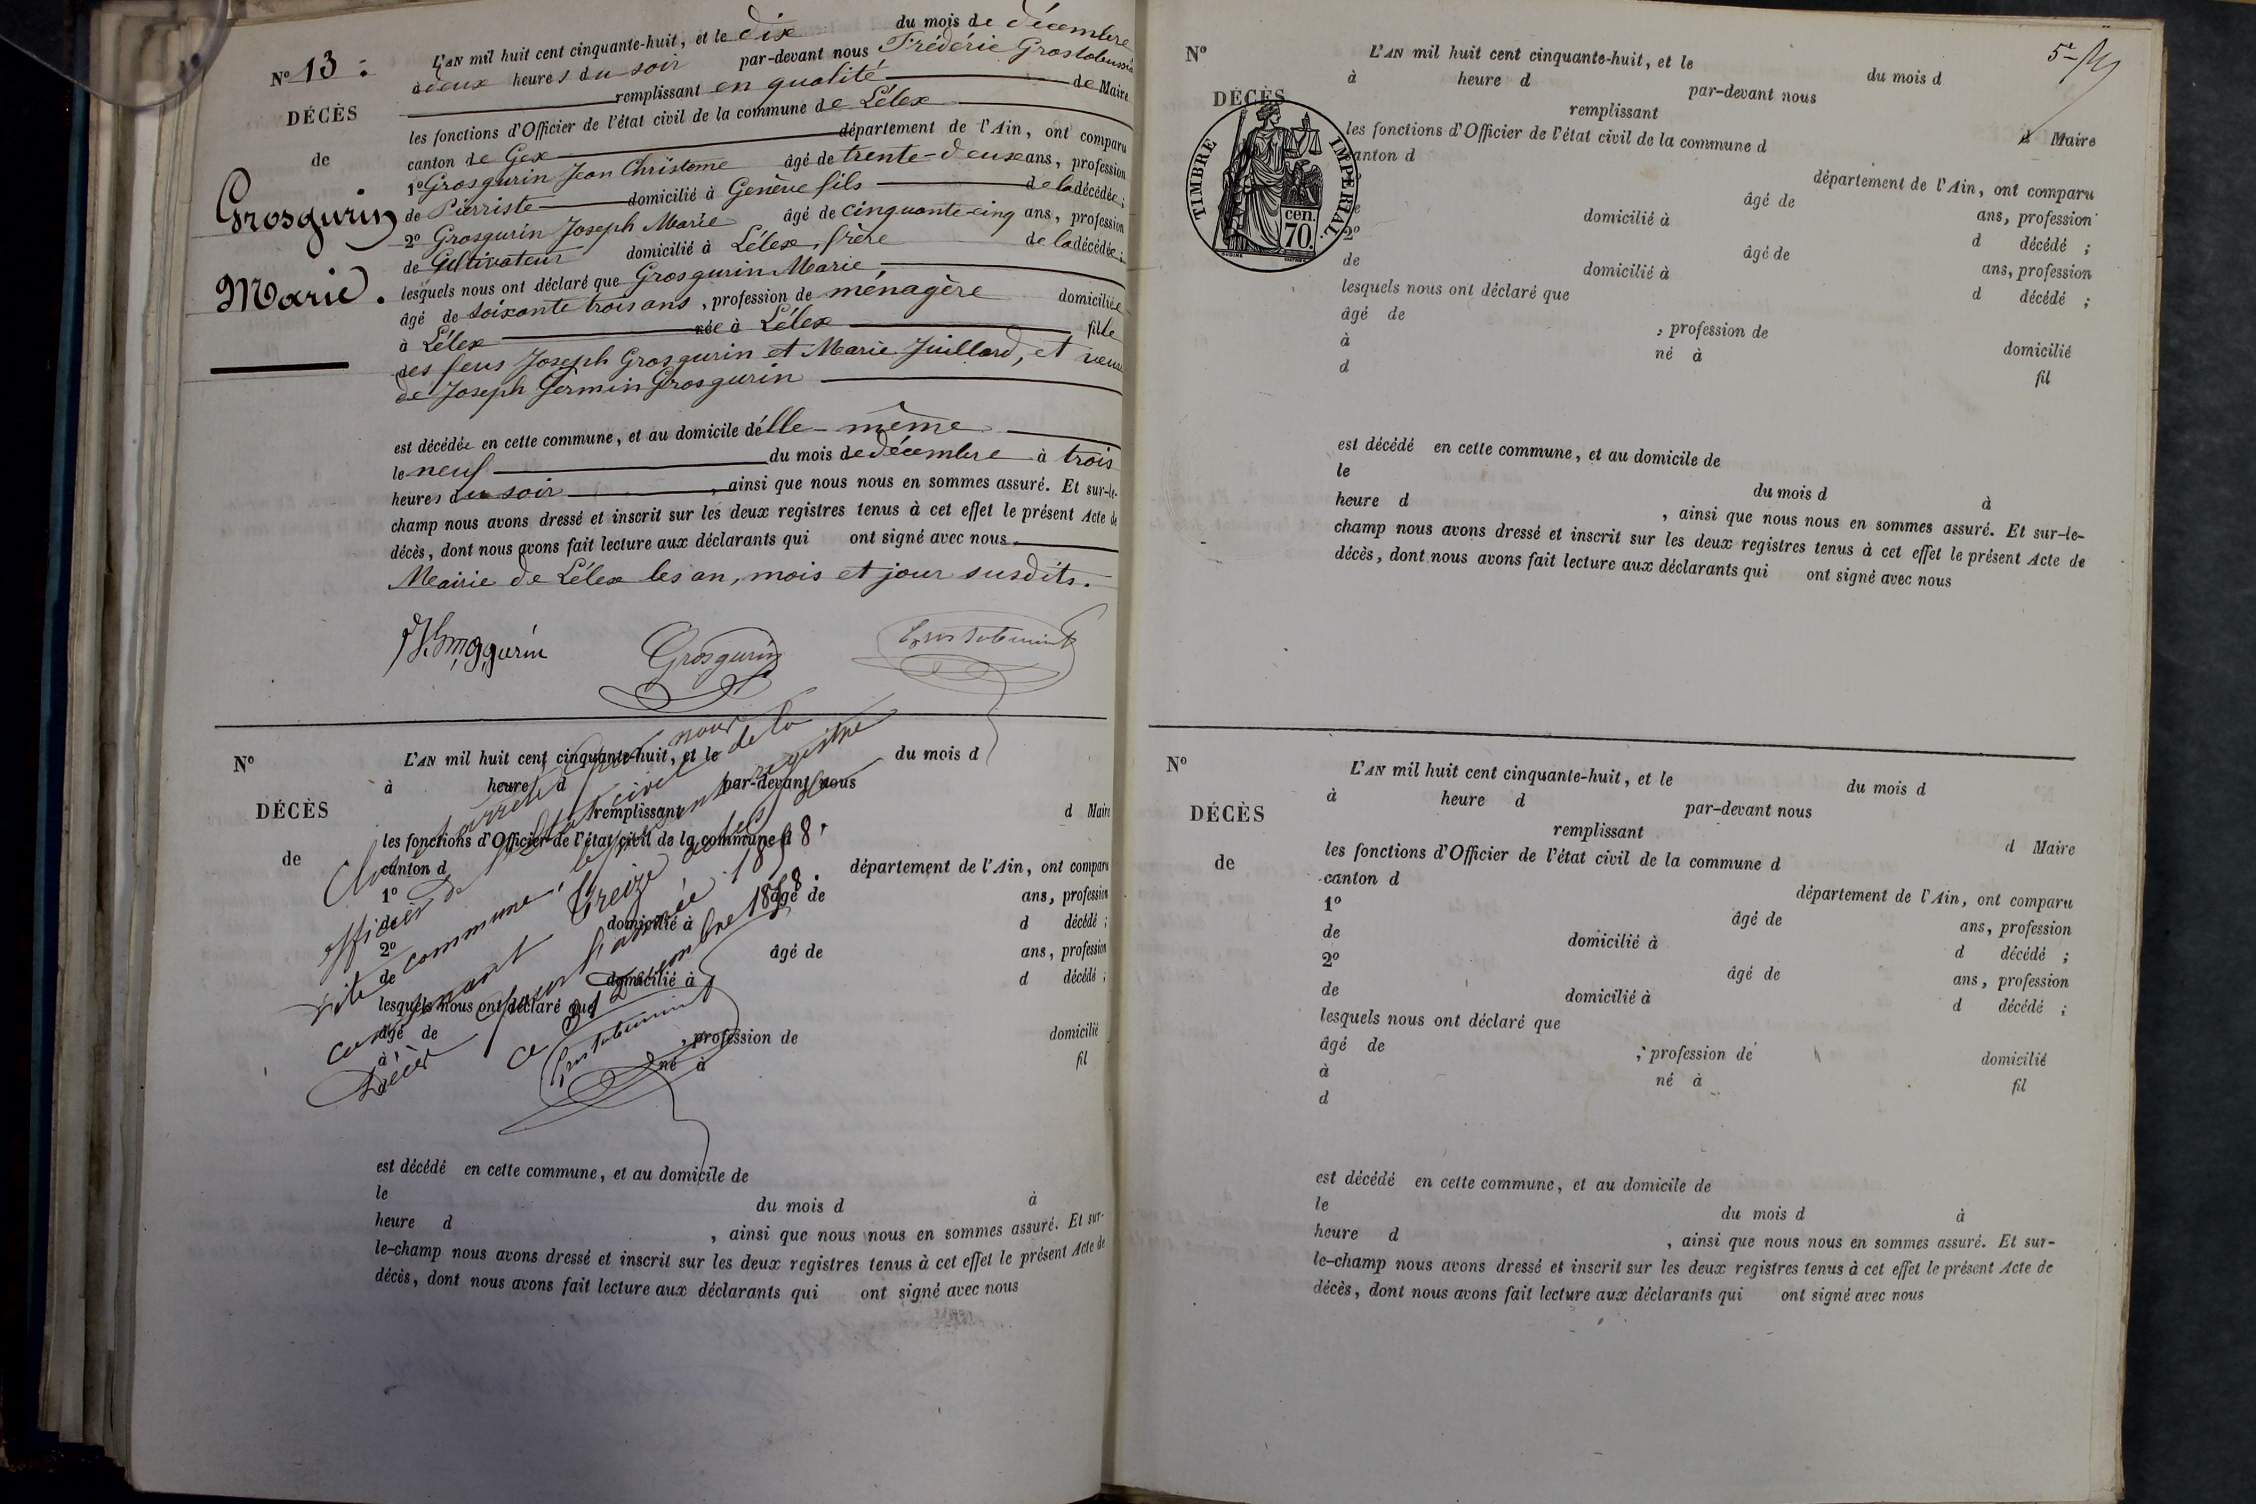 N° 13 :
DÉCÈS
de
Grosgurin
Marie .
L'AN mil huit cent cinquante-huit, et le dix du mois de décembre
à deux heures du soir par-devant nous Frédéric Grostabussiat
remplissant en qualité de Maire
les fonctions d'Officier de l'état civil de la commune de Lélex
canton de Gex département de l'Ain, ont comparu
1° Grosgurin Jean Christome âgé de trente-deux ans, profession
de Pierriste domicilié à Genève fils de la décédée ;
2° Grosgurin Joseph Marie âgé de cinquante-cinq ans, profession
de Cultivateur domicilié à Lélex, frère de la décédée ;
lesquels nous ont déclaré que Grosgurin Marie
âgé de soixante trois ans, profession de ménagère domiciliée
à Lélex née à Lélex fille
des feus Joseph Grosgurin et Marie Juillard, et veuve
de Joseph Germin Grosgurin
est décédée en cette commune, et au domicile d'elle-même
le neuf du mois de décembre à trois
heures du soir, ainsi que nous nous en sommes assuré. Et sur-le-
champ nous avons dressé et inscrit sur les deux registres tenus à cet effet le présent Acte de
décès, dont nous avons fait lecture aux déclarants qui ont signé avec nous
Mairie de Lélex les an, mois et jour susdits.
Grosgurin
N°
DÉCÈS
de
L'AN mil huit cent cinquante-huit, et le du mois d
à heure d par-devant nous
remplissant d Maire
les fonctions d'Officier de l'état civil de la commune d
canton d département de l'Ain, ont comparu
1° âgé de ans, profession
de domicilié à d décédé ;
2° âgé de ans, profession
de domicilié à d décédé ;
lesquels nous ont déclaré que
âgé de , profession de domicilié
à né à fil
d
Clos et arrêté par nous
officier de l'état civil de la
dite commune, le présent registre
contenant treize actes de
Décès pour l'année 1858.
ce 31 décembre 1858.
est décédé en cette commune, et au domicile de
le du mois d à
heure d , ainsi que nous nous en sommes assuré. Et sur-
le-champ nous avons dressé et inscrit sur les deux registres tenus à cet effet le présent Acte de
décès, dont nous avons fait lecture aux déclarants qui ont signé avec nous
5e
N°
DÉCÈS
TIMBRE IMPÉRIAL.
cen.
70.
L'AN mil huit cent cinquante-huit, et le du mois d
à heure d par-devant nous
remplissant d Maire
les fonctions d'Officier de l'état civil de la commune d
canton d département de l'Ain, ont comparu
âgé de ans, profession
de domicilié à d décédé ;
2° âgé de ans, profession
de domicilié à d décédé ;
lesquels nous ont déclaré que
âgé de , profession de domicilié
à né à fil
d
est décédé en cette commune, et au domicile de
le du mois d à
heure d , ainsi que nous nous en sommes assuré. Et sur-le-
champ nous avons dressé et inscrit sur les deux registres tenus à cet effet le présent Acte de
décès, dont nous avons fait lecture aux déclarants qui ont signé avec nous
N°
DÉCÈS
de
L'AN mil huit cent cinquante-huit, et le du mois d
à heure d par-devant nous
remplissant d Maire
les fonctions d'Officier de l'état civil de la commune d
canton d département de l'Ain, ont comparu
1° âgé de ans, profession
de domicilié à d décédé ;
2° âgé de ans, profession
de domicilié à d décédé ;
lesquels nous ont déclaré que
âgé de , profession de domicilié
à né à fil
d
est décédé en cette commune, et au domicile de
le du mois d à
heure d , ainsi que nous nous en sommes assuré. Et sur-
le-champ nous avons dressé et inscrit sur les deux registres tenus à cet effet le présent Acte de
décès, dont nous avons fait lecture aux déclarants qui ont signé avec nous